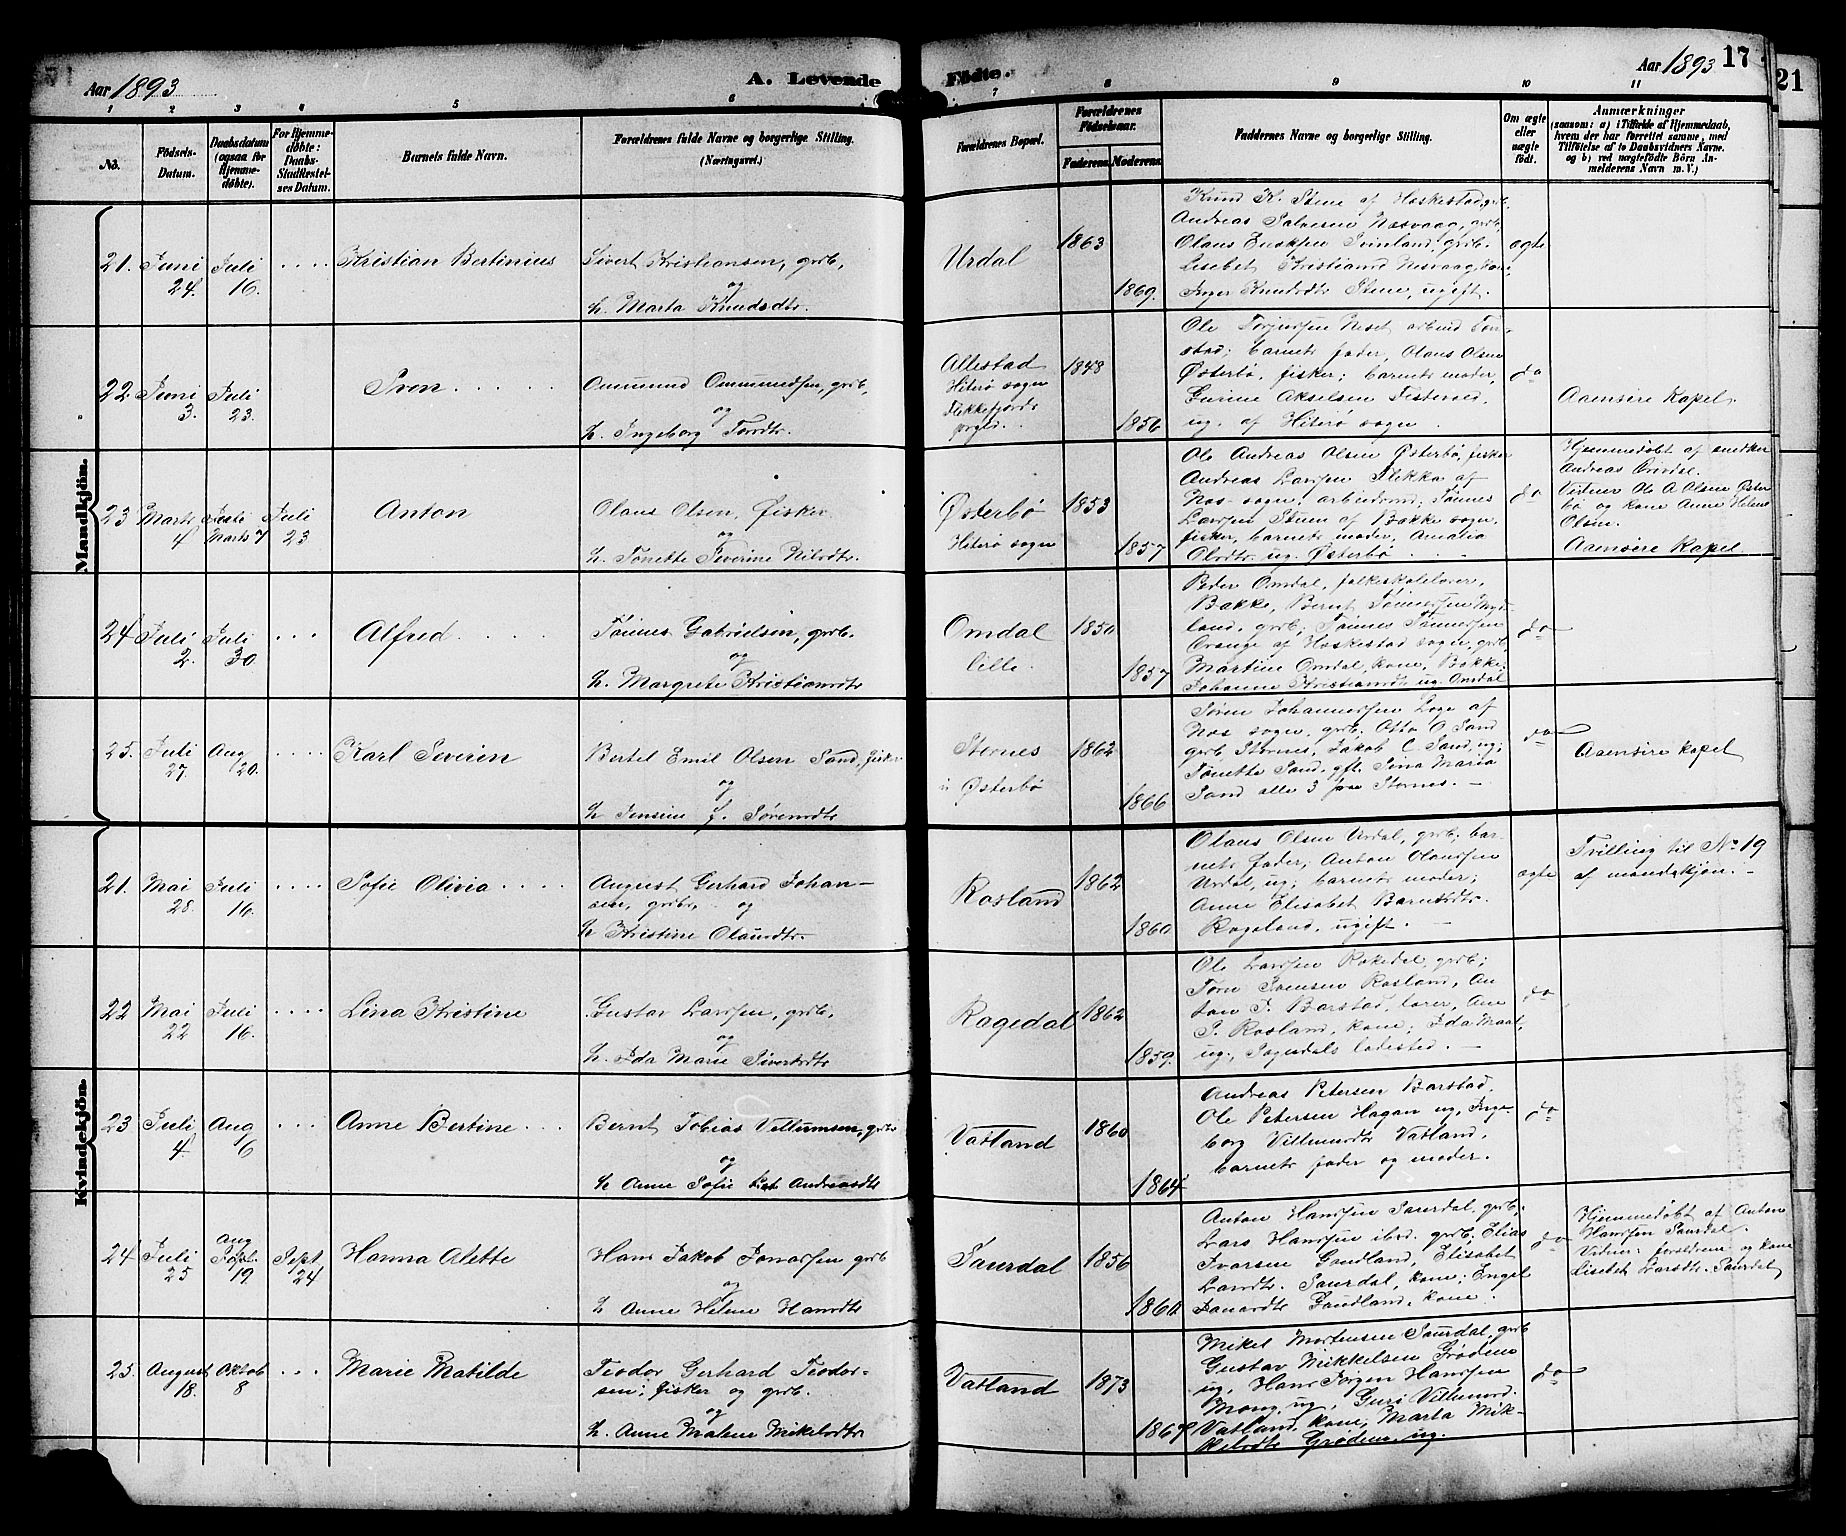 Aar 1893
A. Levende
Fødte.
Aar 1893
17
21
1
2
3
4
5
6
7
8
9
10
11
No.
Fødsels-
Datum.
Daabsdatum
(ogsaa for
Hjemme-
døbte).
For Hjemme-
døbte:
Daabs-
Stadfæstel-
ses Datum.
Barnets fulde Navn.
Forældrenes fulde Navne og borgerlige Stilling.
(Næringsvei.)
Forældrenes Bopæl.
Forældrenes
Fødselsaar.
Faderens.
Moderens.
Faddernes Navne og borgerlige Stilling.
Om ægte
eller
uægte
født.
Anmærkninger
(saasom: a) i Tilfælde af Hjemmedaab,
hvem der har forrettet samme, med
Tilføielse af to Daabsvidners Navne.
og b) ved uægtefødte Børn An-
melderens Navn m. V.)
Mandkjön.
21.
Juni
24.
Juli
16.
Kristian Bertinius
Sivert Kristiansen, grdb,
og
h. Marta Knudsdtr.
Urdal
1863
1869.
Knud K. Stene af Heskestad, grdb.
Andreas Salvesen Nesvaag, grdb,
Olaus Svinland, grdb.
Lisebet Nesvaag, kone,
Inger Knudsdtr Stene, ugift.
ægte
22
Juni
3.
Juli
23.
Sven
Ommund Ommundsen, grdb,
og
h. Ingeborg
Allestad
Hiterø sogn
Flekkefjords
prgjld.
1848
1856
Ole Torjussen Neset
barnets fader, Olaus Olsen
Østerbø, fisker; barnets moder,
Gurine Akselsen
ug. af Hiterø sogn
do
Aamsire Kapel.
23
Marts
4
Marts 7
Juli
23
Anton
Olaus Olsen, Fisker
og
h. Tonette Severine Nilsdtr.
Østerbø
Hiterø sogn
1853
1857
Ole Andreas Olsen Østerbø, fisker
Andreas Larssen Flikka af
Nes sogn, arbeidsmd; Tønnes
Larssen Steen af Bakke sogn,
fisker, barnets moder, Amalia
Olsdtr ug. Østerbø
do
Hjemmedøbt af snedker
Andreas Omdal.
Vidner Ole A Olsen Øster
bø og kone Anne Helene
Olsen.
Aamsire Kapel
24
Juli
2.
Juli
30.
Alfred
Tønnes Gabrielsen, grdb.
og
h. Margrete Kristiansdtr
Omdal
lille
1850
1857
Peder Omdal, folkeskolelærer,
Bakke, Bernt Tønnessen
land, grdb; Tønnes Tønnessen
af Heskestad sogn, grdb
Martine Omdal, kone, Bakke;
Johanne Kristiansdtr ug. Omdal
do
25.
Juli
27.
Aug
20.
Karl Severin
Bertel Emil Olsen Sand, fisker
og
h Jensine J. Sørensdtr
Stornes
i Østerbø
1862
1866
Søren Johannessen Loge af
Nes sogn, grdb; Otto O Sand
grdb Stornes, Jakob C. Sand, ug;
Tonette Sand, gft. Sina Maria
Sand alle 3 paa Stornes.
do
Aamsire kapel
Kvindekjön.
21.
Mai
28.
Juli
16.
Sofie Olivia
August Gerhard Johan-
sen, grdbr, og
h Kristine Olausdtr.
Rosland
1862
1860
Olaus Olsen Urdal, grdb, bar-
nets fader; Anton Olaussen
Urdal, ug; barnets moder;
Anne Elisabet
Rageland, ugift.
ægte
Tvilling til No 19
af mandskjøn.
22
Mai
22
Juli
16.
Lina Kristine
Gustav Larssen, grdb,
og
h. Ida Marie Sivertsdtr
Ragedal
1862
1859.
Ole Larssen Rakedal, grdb;
Tørn Svensen Rosland, An
ton J. Barstad, lærer, Ane
S. Rosland, kone, Ida
ug., Sogndals ladested.
do
23
Juli
4.
Aug
6
Anne Bertine
Bernt Tobias Villumsen, grdb
og
h Anne Sofie Andreasdtr
Vatland
1860
1864
Andreas Petersen Barstad,
Ole Petersen Hagan ug, Inge-
borg Villumsdtr Vatland,
barnets fader og moder.
do
24
Juli
25
Aug
19
Sept
24
Hanna Alette
Hans Jakob Jonassen grdb
og
h Anne Helene Hansdtr
Saurdal
1856
1860
Anton Hanssen Saurdal, grdb,
Lars Hanssen ibid. grdb. Elias
Ivarsen Gaudland, Elisabet
Larsdtr. Saurdal, kone; Engel
Jonasdtr Gaudland, kone.
do
Hjemmedøbt af Anton
Hanssen Saurdal.
Vidner: forældrene og kone
Lisebet Larsdtr. Saurdal
25.
August
18.
Oktob
8
Marie Matilde
Teodor Gerhard Teodor-
sen; fisker og grdb.
og
h. Anne Malene Mikelsdtr
Vatland
1873
1869
Mikel Mortensen Saurdal, grdb
Gustav Mikkelsen Grødem
ug, Hans Jørgen Hanssen
Mong, ug, Guri Villumsd.
Vatland, kone, Marta Mik-
kelsdtr Grødem, ug.
do